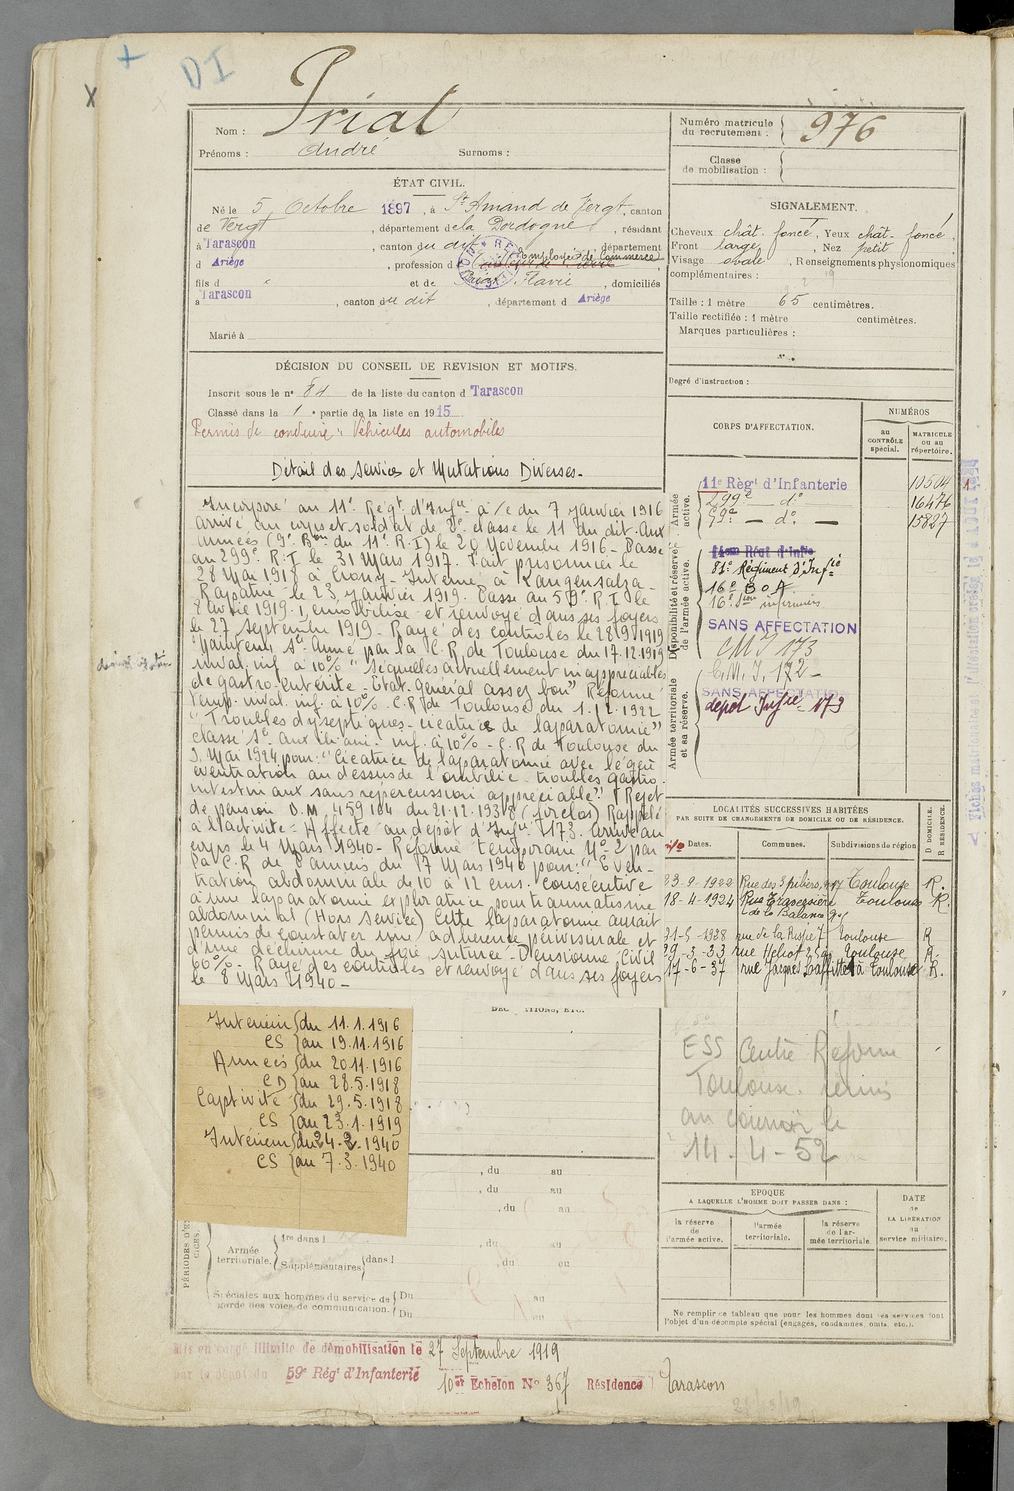 +
DI
X
Nom : Prial
Prénoms : André Surnoms :
Numéro matricule du recrutement : 976
Classe de mobilisation :
ÉTAT CIVIL.
Né le 5 Octobre 1897, à St Amand de Vergt, canton
de Vergt, département de la Dordogne, résidant
à Tarascon, canton du dit, département
d Ariège, profession d Employé de Commerce
fils d " et de Flavie, domiciliés
à Tarascon, canton du dit, département d Ariège
Marié à
SIGNALEMENT.
Cheveux chât. foncé, Yeux chât. foncé
Front large, Nez petit
Visage ovale, Renseignements physionomiques
complémentaires :
Taille : 1 mètre 65 centimètres.
Taille rectifiée : 1 mètre centimètres.
Marques particulières :
Degré d'instruction :
DÉCISION DU CONSEIL DE REVISION ET MOTIFS.
Inscrit sous le n° 81 de la liste du canton d Tarascon
Classé dans la 1e partie de la liste en 1915
Permis de conduire : Véhicules automobiles
Détail des Services et Mutations Diverses.
Incorporé au 11e Régt d'Infie à/c du 7 Janvier 1916
arrivé au corps et soldat de 2e classe le 11 du dit. Aux
Armées (9e Bon du 11e R.I) le 20 Novembre 1916 - Passé
au 299e R.I le 31 Mars 1917. Fait prisonnier le
28 Mai 1918 à Crouy - Interné à Langensalza -
Rapatrié le 23 Janvier 1919. Passé au 59e R.I le
1919. Démobilisé et renvoyé dans ses foyers
le 27 Septembre 1919 - Rayé des contrôles le 28/9/1919
Maintenu Sce Armé par la C.R. de Toulouse du 17.12.1919
inval. inf. à 10% "Séquelles actuellement inappréciables
de gastro-entérite - Etat général assez bon" Réformé
temp. inval. inf. à 10% C.R. de Toulouse du 1.12.1922
"Troubles dyseptiques - cicatrice de laparatomie"
classé Sce Aux inf. à 10% - C.R de Toulouse du
9 Mai 1924 pour : "Cicatrice de laparatomie avec légère
éventration au dessus de l'ombilic - troubles gastro-
intestinaux sans répercussion appréciable" Rejet
de pension D.M. 459184 du 21.12.1938 (forclos) Rappelé
à l'activité - Affecté au dépôt d'Infie 173. Arrivé au
corps le 4 Mars 1940 - Réformé temporaire N° 2 par
la C.R de Pamiers du 7 Mars 1940 pour : "Even-
tration abdominale de 10 à 12 cms. consécutive
à une laparatomie exploratrice pour traumatisme
abdominal (Hors service) Cette laparatomie aurait
permis de constater une adhérence périviscérale et
d'une déchirure du foie suturée - Pensionné Civil
60%. Rayé des contrôles et renvoyé dans ses foyers
le 8 Mars 1940 -
CORPS D'AFFECTATION.
NUMÉROS
au CONTRÔLE spécial.
MATRICULE ou au répertoire.
Armée active.
11e Régt d'Infanterie 10504
299e — do 16476
59e — do — 15827
Disponibilité et réserve de l'armée active.
14eme Régt d'Infie
81e Régiment d'Infie
16e B O A
16e Son infirmiers
SANS AFFECTATION
CMI 173
C.M.I. 172 -
SANS AFFECTATION
dépôt Infie 173
Armée territoriale et sa réserve.
LOCALITÉS SUCCESSIVES HABITÉES
PAR SUITE DE CHANGEMENTS DE DOMICILE OU DE RÉSIDENCE.
Dates. Communes. Subdivisions de région D. DOMICILE. R. RÉSIDENCE.
23-9-1922 Rue des 3 piliers, Toulouse R.
18-4-1924 Rue Traversière de la Balance 9 Toulouse R.
21-5-1928 rue de la 7 Toulouse R
29-3-33 rue Héliot Toulouse R.
17-6-37 rue Jacques Laffitte 1 à Toulouse R.
Intérieur { du 11.1.1916
CS { au 19.11.1916
Armées { du 20.11.1916
CD { au 28.5.1918
Captivité { du 29.5.1918
CS { au 23.1.1919
Intérieur { du 24.2.1940
CS { au 7.3.1940
ESS Centre Réforme
Toulouse. remis
au le
14.4-52
, du au
, du au
, du au
PÉRIODES D'EXERCICES.
Armée territoriale.
1re dans l , du au
Supplémentaires dans l , du au
Spéciales aux hommes du service de garde des voies de communication. Du au
Du au
EPOQUE
A LAQUELLE L'HOMME DOIT PASSER DANS :
la réserve de l'armée active.
l'armée territoriale.
la réserve de l'armée territoriale.
DATE de LA LIBÉRATION du service militaire.
Ne remplir ce tableau que pour les hommes dont les services font
l'objet d'un décompte spécial (engagés, condamnés, omis, etc.).
Mis en congé illimité de démobilisation le 27 Septembre 1919
par le dépôt du 59e Régt d'Infanterie
10e Echelon N° 367 Résidence Tarascon